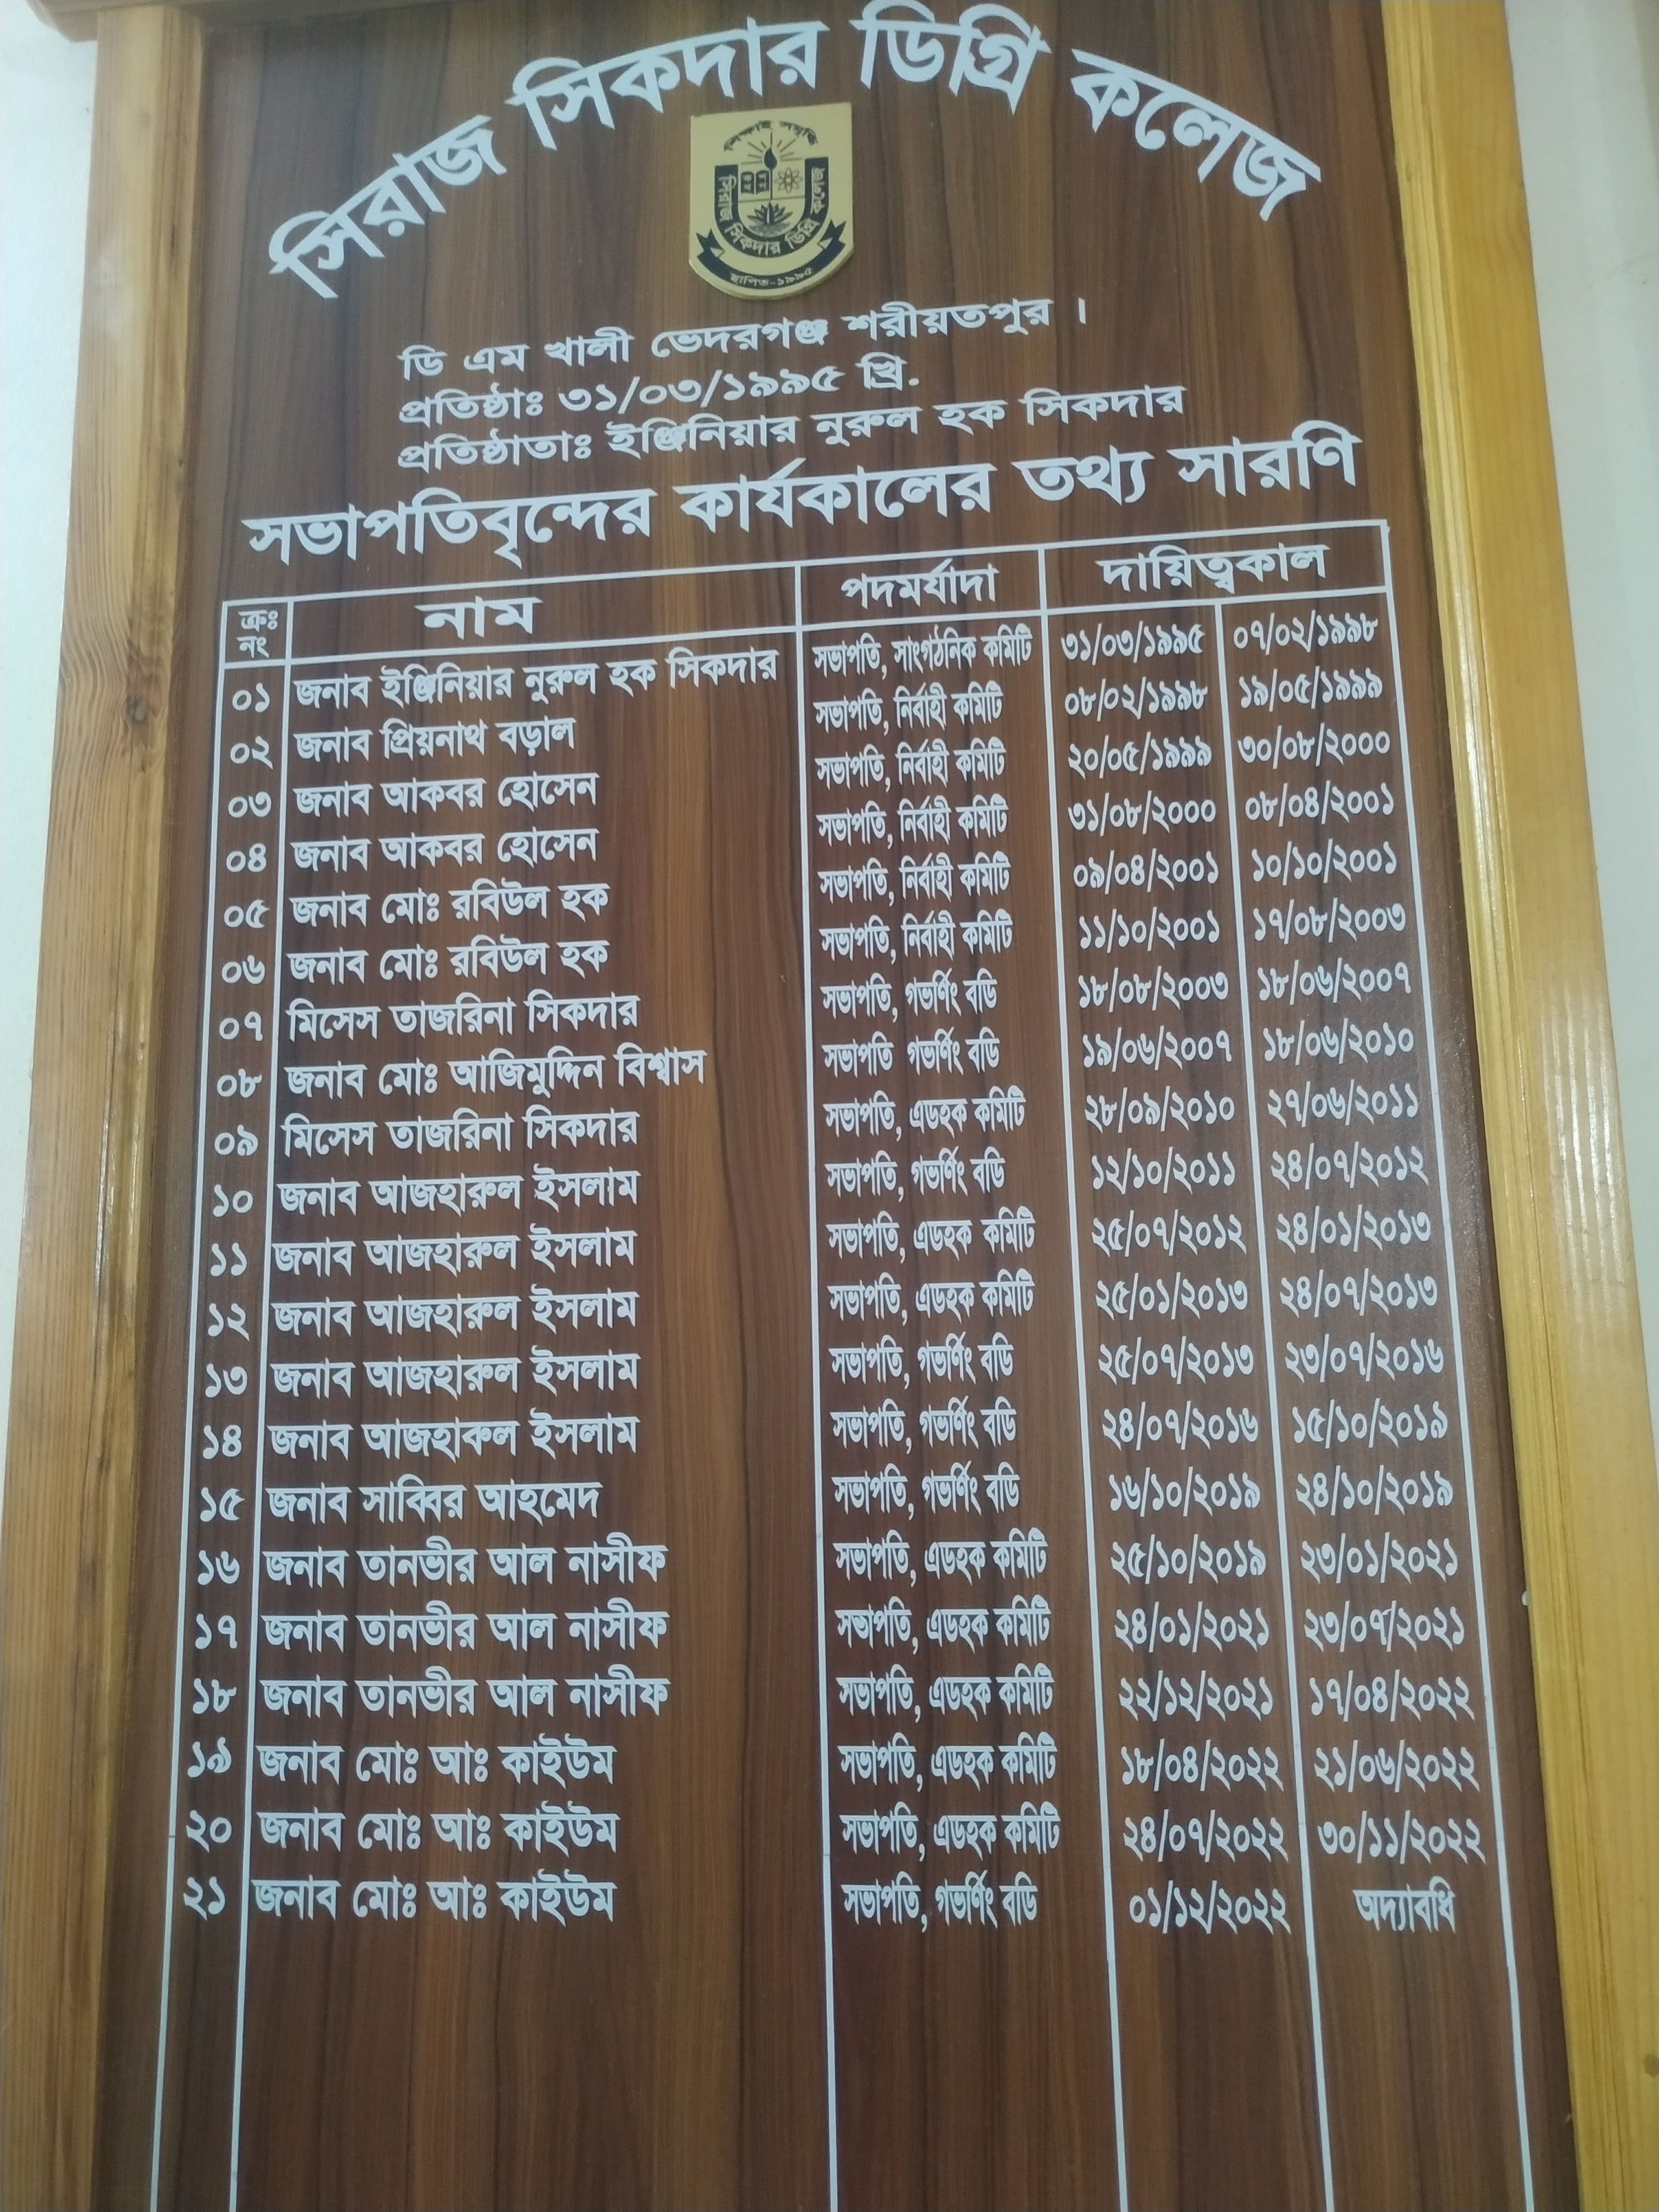 সিরাজ সিকদার ডিগ্রি কলেজ
শিক্ষাই সমৃদ্ধি
সিরাজ সিকদার ডিগ্রি কলেজ
স্থাপিত-১৯৯৫
ডি এম খালী ভেদরগঞ্জ শরীয়তপুর ।
প্রতিষ্ঠাঃ ৩১/০৩/১৯৯৫ খ্রি.
প্রতিষ্ঠাতাঃ ইঞ্জিনিয়ার নুরুল হক সিকদার
সভাপতিবৃন্দের কার্যকালের তথ্য সারণি
ক্রঃ নং নাম পদমর্যাদা দায়িত্বকাল
০১ জনাব ইঞ্জিনিয়ার নুরুল হক সিকদার সভাপতি, সাংগঠনিক কমিটি ৩১/০৩/১৯৯৫ ০৭/০২/১৯৯৮
০২ জনাব প্রিয়নাথ বড়াল সভাপতি, নির্বাহী কমিটি ০৮/০২/১৯৯৮ ১৯/০৫/১৯৯৯
০৩ জনাব আকবর হোসেন সভাপতি, নির্বাহী কমিটি ২০/০৫/১৯৯৯ ৩০/০৮/২০০০
০৪ জনাব আকবর হোসেন সভাপতি, নির্বাহী কমিটি ৩১/০৮/২০০০ ০৮/০৪/২০০১
০৫ জনাব মোঃ রবিউল হক সভাপতি, নির্বাহী কমিটি ০৯/০৪/২০০১ ১০/১০/২০০১
০৬ জনাব মোঃ রবিউল হক সভাপতি, নির্বাহী কমিটি ১১/১০/২০০১ ১৭/০৮/২০০৩
০৭ মিসেস তাজরিনা সিকদার সভাপতি, গভর্ণিং বডি ১৮/০৮/২০০৩ ১৮/০৬/২০০৭
০৮ জনাব মোঃ আজিমুদ্দিন বিশ্বাস সভাপতি গভর্ণিং বডি ১৯/০৬/২০০৭ ১৮/০৬/২০১০
০৯ মিসেস তাজরিনা সিকদার সভাপতি, এডহক কমিটি ২৮/০৯/২০১০ ২৭/০৬/২০১১
১০ জনাব আজহারুল ইসলাম সভাপতি, গভর্ণিং বডি ১২/১০/২০১১ ২৪/০৭/২০১২
১১ জনাব আজহারুল ইসলাম সভাপতি, এডহক কমিটি ২৫/০৭/২০১২ ২৪/০১/২০১৩
১২ জনাব আজহারুল ইসলাম সভাপতি, এডহক কমিটি ২৫/০১/২০১৩ ২৪/০৭/২০১৩
১৩ জনাব আজহারুল ইসলাম সভাপতি, গভর্ণিং বডি ২৫/০৭/২০১৩ ২৩/০৭/২০১৬
১৪ জনাব আজহারুল ইসলাম সভাপতি, গভর্ণিং বডি ২৪/০৭/২০১৬ ১৫/১০/২০১৯
১৫ জনাব সাব্বির আহমেদ সভাপতি, গভর্ণিং বডি ১৬/১০/২০১৯ ২৪/১০/২০১৯
১৬ জনাব তানভীর আল নাসীফ সভাপতি, এডহক কমিটি ২৫/১০/২০১৯ ২৩/০১/২০২১
১৭ জনাব তানভীর আল নাসীফ সভাপতি, এডহক কমিটি ২৪/০১/২০২১ ২৩/০৭/২০২১
১৮ জনাব তানভীর আল নাসীফ সভাপতি, এডহক কমিটি ২২/১২/২০২১ ১৭/০৪/২০২২
১৯ জনাব মোঃ আঃ কাইউম সভাপতি, এডহক কমিটি ১৮/০৪/২০২২ ২১/০৬/২০২২
২০ জনাব মোঃ আঃ কাইউম সভাপতি, এডহক কমিটি ২৪/০৭/২০২২ ৩০/১১/২০২২
২১ জনাব মোঃ আঃ কাইউম সভাপতি, গভর্ণিং বডি ০১/১২/২০২২ অদ্যাবধি